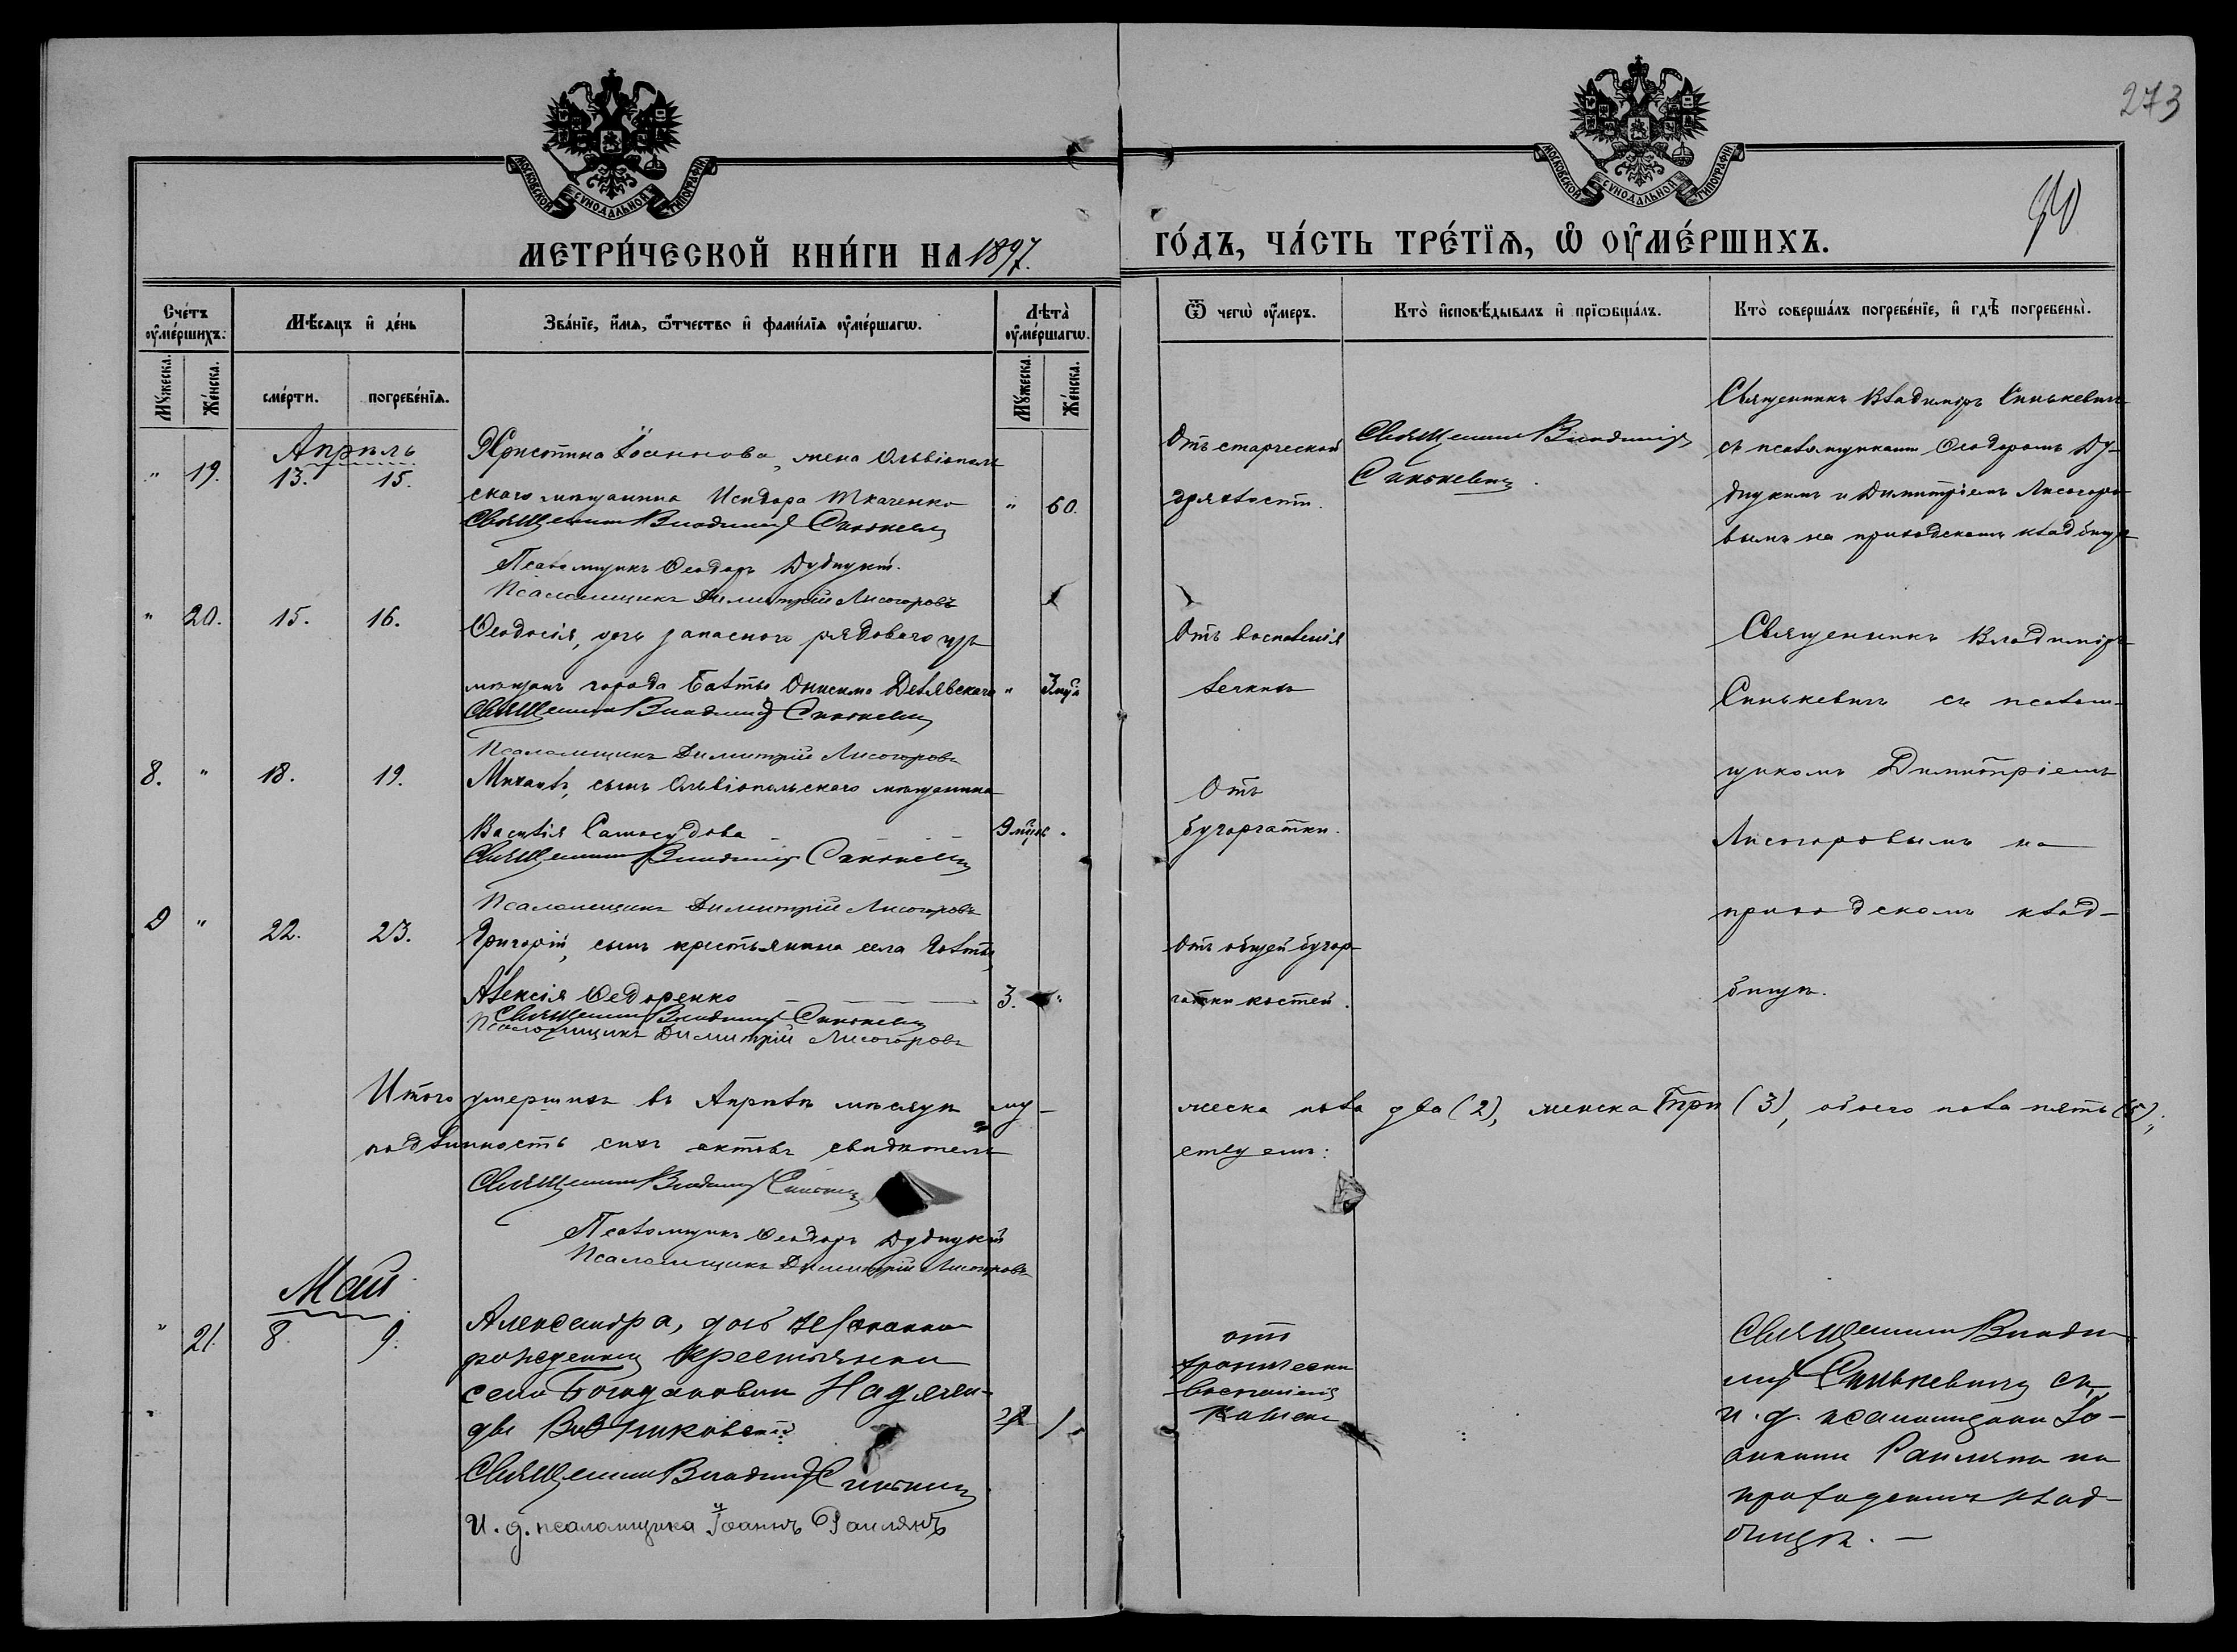 273
90
МОСКОВСКОЙ СѴНОДАЛЬНОЙ ТИПОГРАФІИ
МОСКОВСКОЙ СѴНОДАЛЬНОЙ ТИПОГРАФІИ
МЕТРИ́ЧЕСКОЙ КНИ́ГИ НА 1897.
ГО́ДЪ, ЧА́СТЬ ТРЕ́ТІѦ, Ѡ҆ ОУ҆МЕ́РШИХЪ.
Сче́тъ оу҆ме́ршихъ:
Мѣ́сѧцъ и҆ де́нь
Зва́нїе, и҆́мѧ, ѻ҆́тчество и҆ фами́лїѧ оу҆ме́ршагѡ.
Лѣта̀ оу҆ме́ршагѡ.
Ѿ чегѡ̀ оу҆́меръ.
Кто̀ и҆сповѣ́дывалъ и҆ прїѡбща́лъ.
Кто̀ соверша́лъ погребе́нїе, и҆ гдѣ̀ погребены̀.
Мꙋ́жеска.
Же́нска.
сме́рти.
погребе́нїѧ.
Мꙋ́жеска.
Же́нска.
Апрѣль
" 19. 13. 15.
Христина Іоаннова, жена Ольвіополь
скаго мѣщанина Исидора Ткаченко
" 60.
Священникъ Владиміръ Синькевичъ
Псаломщикъ Ѳеодоръ Дубицкій.
Псаломщикъ Димитрій Лисогоровъ
Отъ старческой
дряхлости.
Священникъ Владиміръ
Синькевичъ.
Священникъ Владиміръ Синькевичъ
съ псаломщиками Ѳеодоромъ Ду-
бицкимъ и Димитріемъ Лисогоро-
вымъ на приходскомъ кладбищѣ
" 20. 15. 16.
Ѳеодосія, дочь запаснаго рядоваго изъ
мѣщанъ города Балты Онисима Делявскаго
" 3 мца
Священникъ Владиміръ Синькевичъ
Псаломщикъ Димитрій Лисогоровъ
Отъ воспаленія
легкихъ
Священникъ Владиміръ
Синькевичъ съ псалом-
щикомъ Димитріемъ
Лисогоровымъ на
приходскомъ клад-
бищѣ.
8. " 18. 19.
Михаилъ, сынъ Ольвіопольскаго мѣщанина
Василія Самосудова
9 мцевъ
Священникъ Владиміръ Синькевичъ
Псаломщикъ Димитрій Лисогоровъ
Отъ
бугорчатки.
9 " 22. 23.
Григорій, сынъ крестьянина села Голты,
Алексія Ѳедоренко
3. "
Священникъ Владиміръ Синькевичъ
Псаломщикъ Димитрій Лисогоровъ
Отъ общей бугор-
чатки костей.
Итого умершихъ въ Апрѣлѣ мѣсяцѣ му-
жеска пола два (2), женска три (3), обоего пола пять (5);
подлинность сихъ актовъ свидѣтель
ствуемъ:
Священникъ Владиміръ Синькевичъ
Псаломщикъ Ѳеодоръ Дубицкій
Псаломщикъ Димитрій Лисогоровъ
Май
" 21. 8. 9.
Александра, дочь незаконно-
рожденная крестьянки
села Богдановки Надеж-
ды
1
Священникъ Владиміръ Синькевичъ
И. д. псаломщика Іоаннъ Раилянъ
отъ
хронически
воспаленія
кишекъ
Священникъ Влади-
міръ Синькевичъ съ
и. д. псаломщика Іо-
анномъ Раиляномъ на
приходскомъ клад-
бищѣ. —